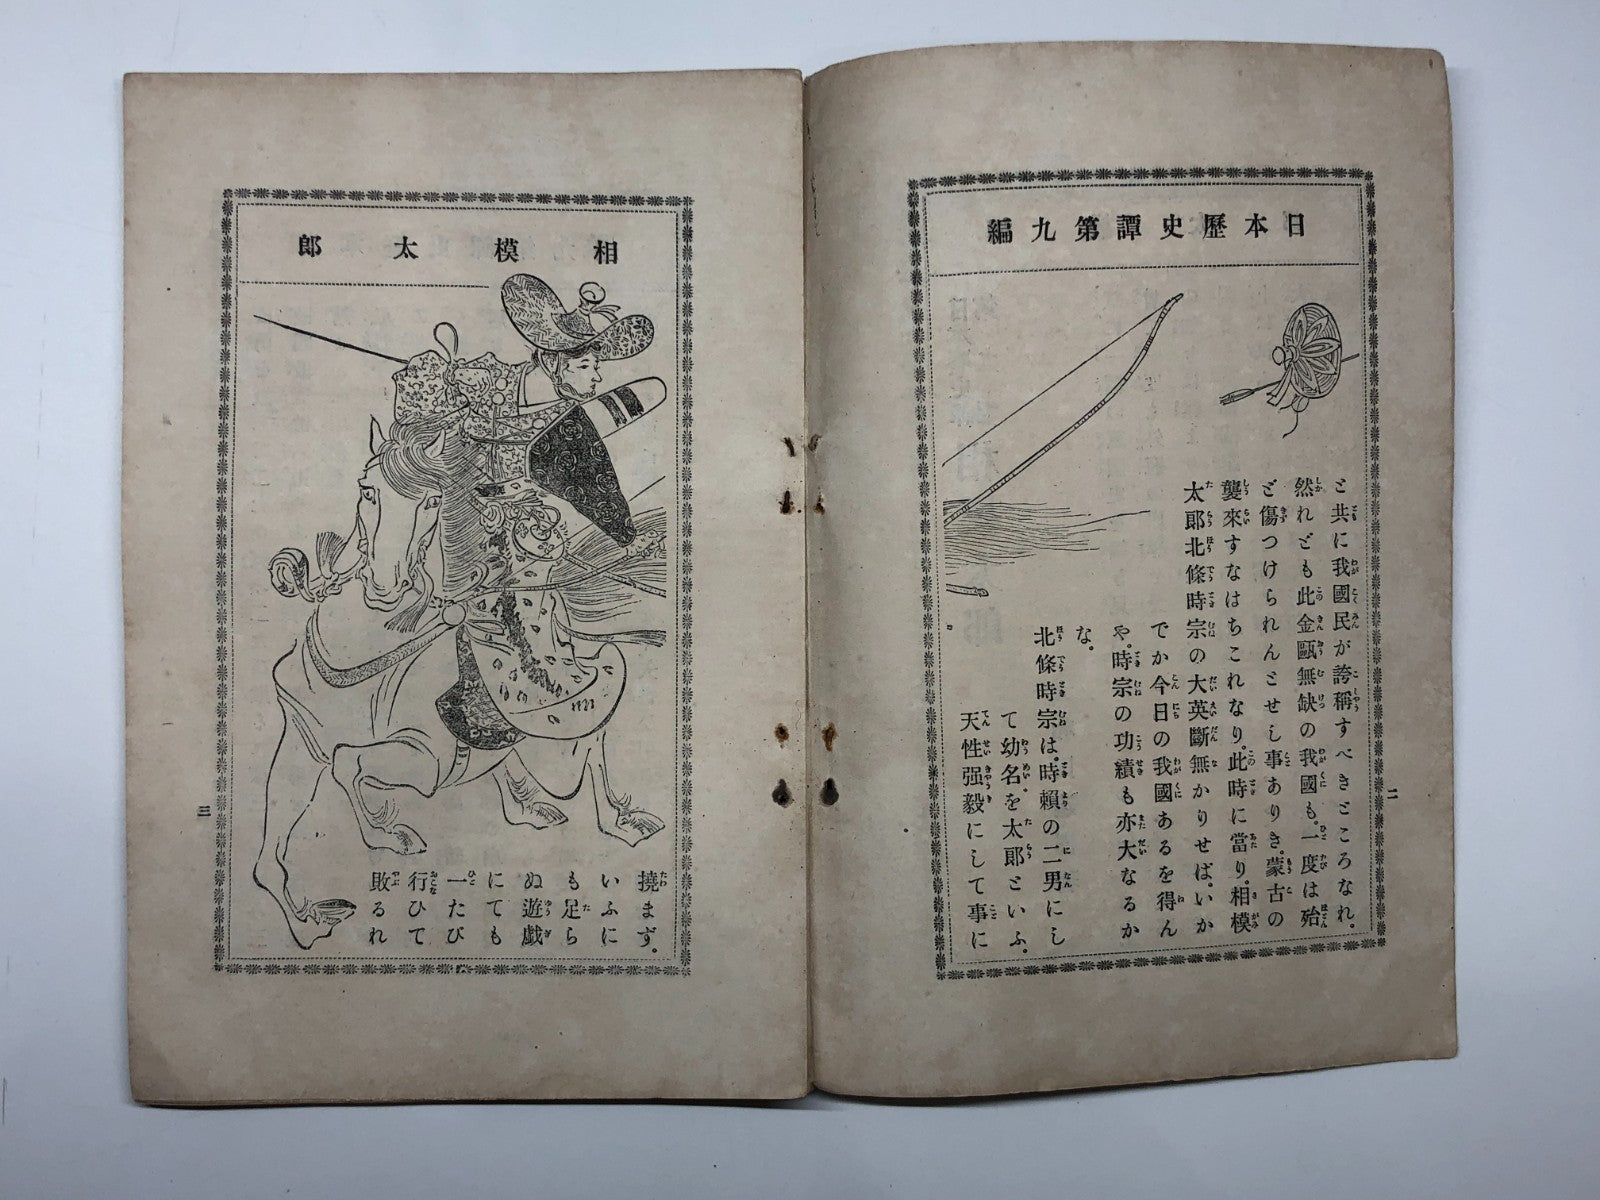 日本歷史譚第九編
と共に我國民が誇稱すべきところなれ。
然れども此金甌無缺の我國も、一度は殆
ど傷つけられんとせし事ありき。蒙古の
襲來すなはちこれなり。此時に當り、相模
太郎北條時宗の大英斷無かりせば、いか
でか今日の我國あるを得ん
や。時宗の功績も亦大なるか
な。
北條時宗は、時賴の二男にし
て幼名を太郎といふ。
天性强毅にして事に
二
相模太郎
撓まず。
いふに
も足ら
ぬ遊戯
にても
一たび
行ひて
敗るれ
三